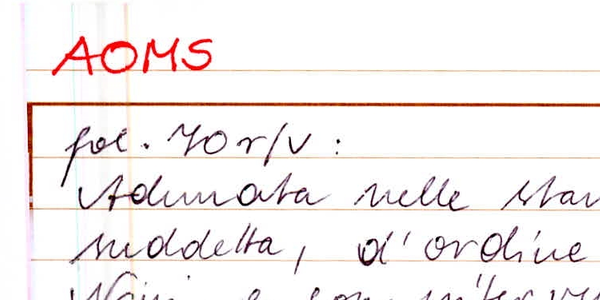 AOMS
fol. 70r/v:
Adunata nelle stan
suddetta, d'ordine
e con